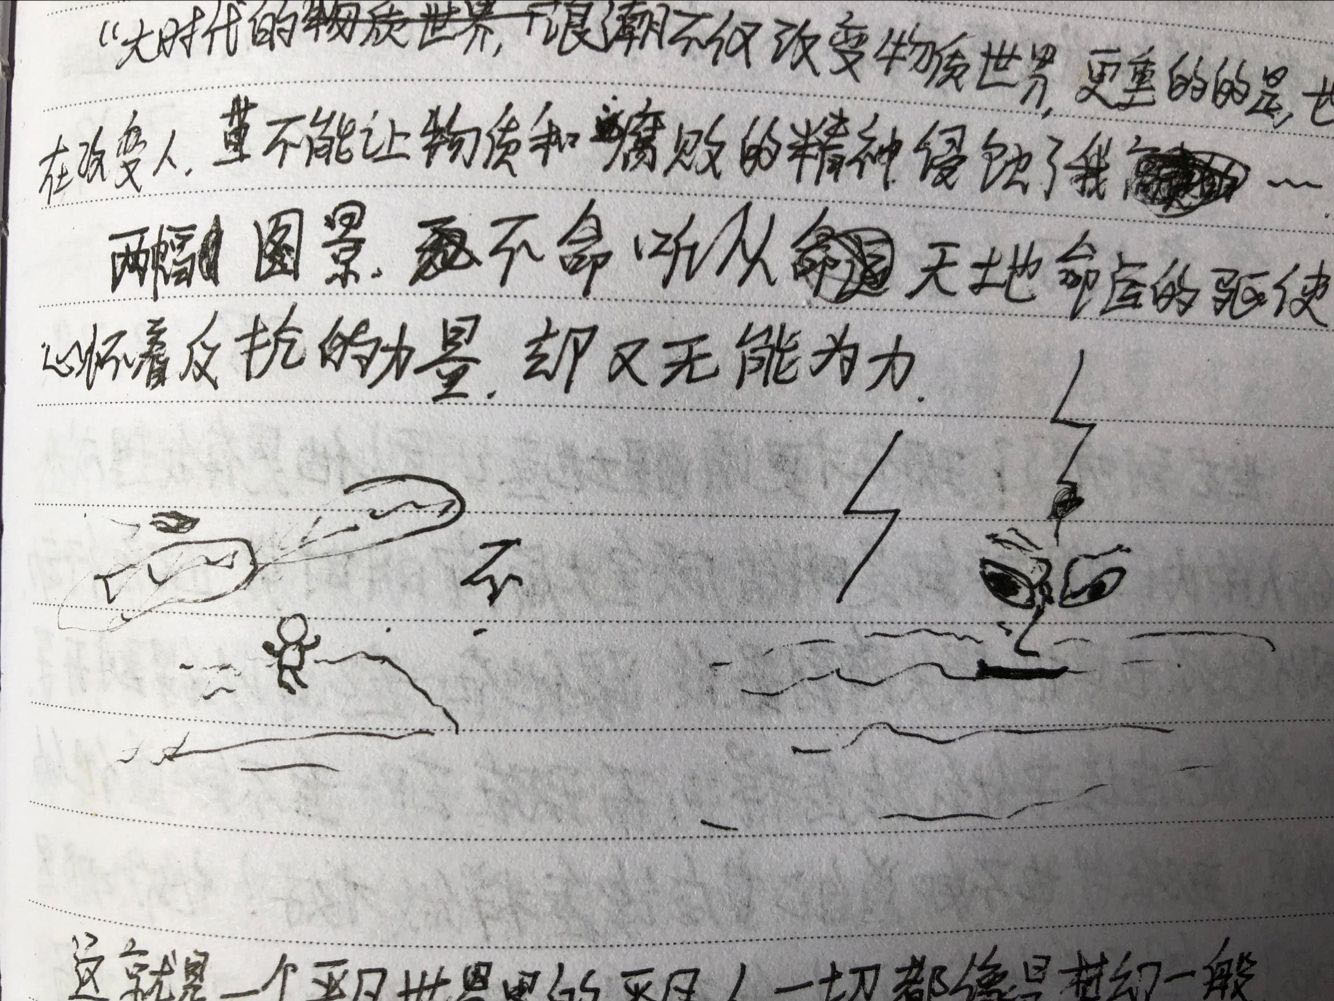 “大时代的浪潮不仅改变物质世界,更重的的是,也
在改变人.草不能让物质和腐败的精神侵蚀了我
两幅图景.不命听从天土地命运的驱使
心怀着反抗的力量.却又无能为力.
不
这就是一个平凡世界里的平凡人一切都像是梦幻一般